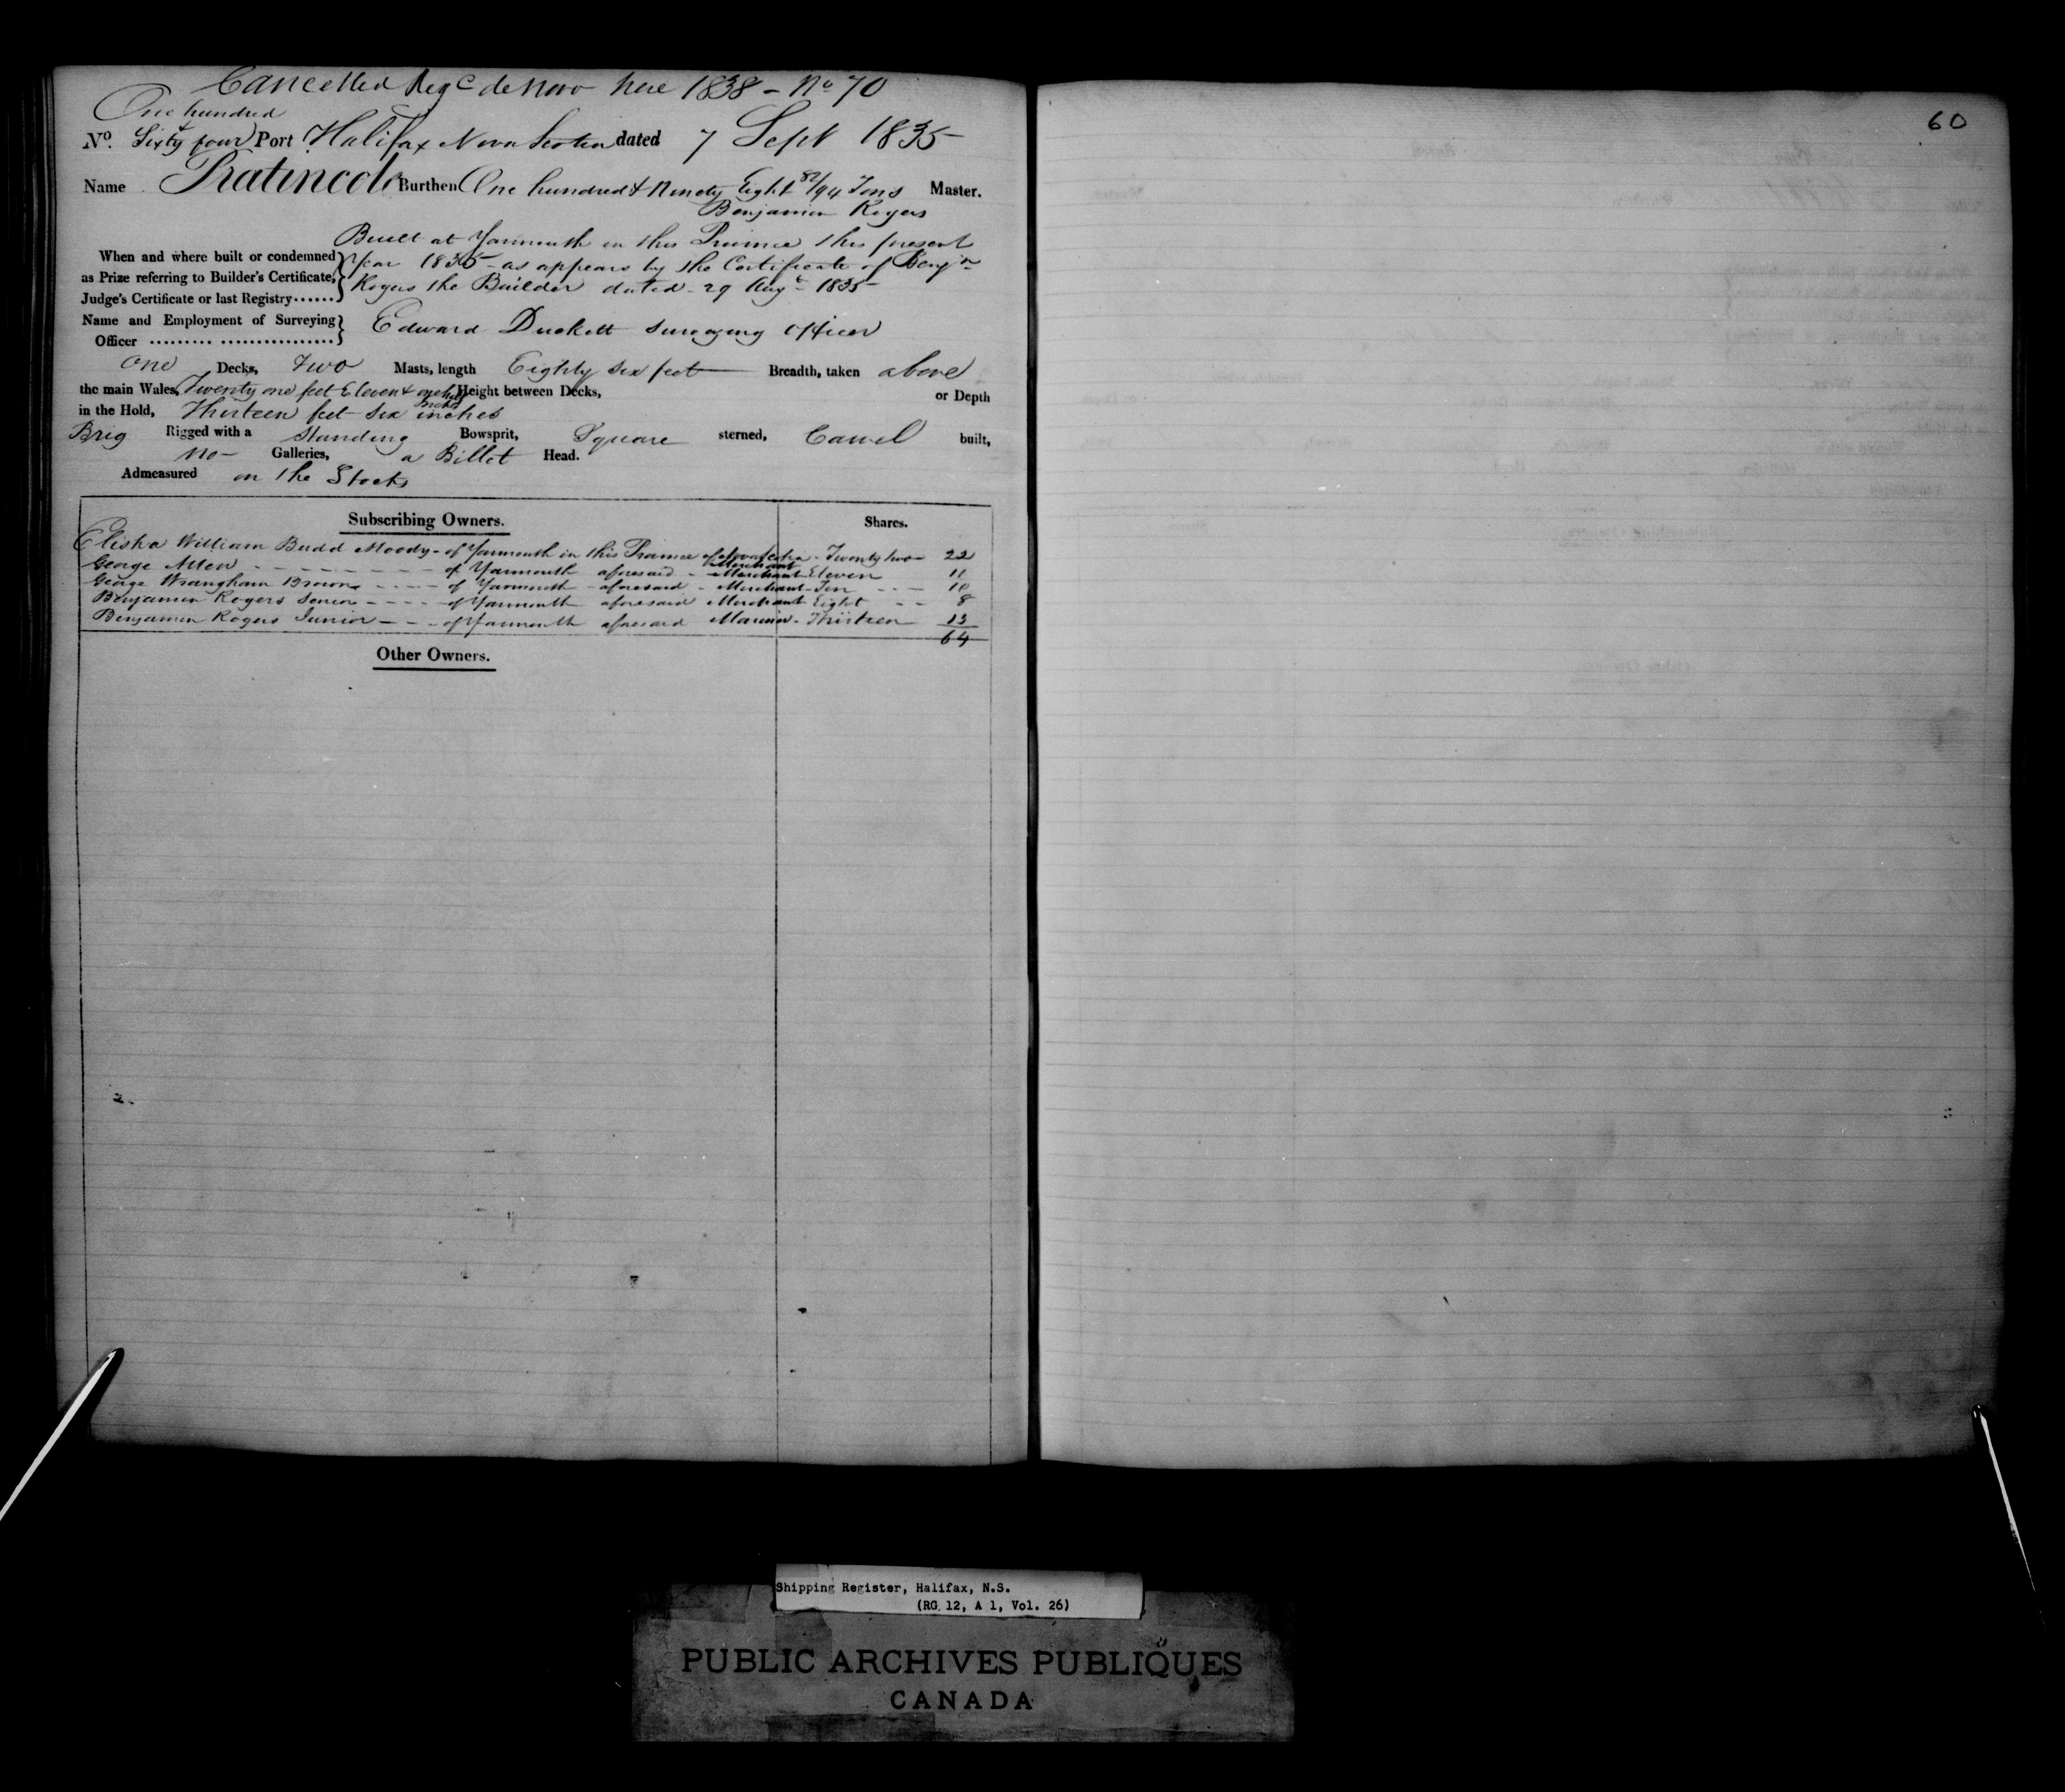 Cancelled Reg<sup>d</sup> de novo here 1838 - No 70
One hundred
No. Sixty four Port Halifax Nova Scotia dated 7 Sept 1835
Name Pratincole Burthen One hundred & Ninety Eight 82/94 Tons Master.
Benjamin Rogers
Built at Yarmouth in this Province this present
When and where built or condemned year 1835 - as appears by the Certificate of Benjn
as Prize referring to Builder's Certificate, Rogers the Builder dated - 29 Augt 1835
Judge's Certificate or last Registry......
Name and Employment of Surveying Edward Duckett Surveying Officer
Officer ......... ................
One Decks, Two Masts, length Eighty six feet Breadth, taken above
the main Wales, Twenty one feet Eleven & inches Height between Decks, or Depth
in the Hold, Thirteen feet six inches
Brig Rigged with a Standing Bowsprit, Square sterned, Carvel built,
no - Galleries, a Billet Head.
Admeasured on the Stocks
Subscribing Owners. Shares.
Elisha William Budd Moody - of Yarmouth in this Province of Nova Scotia - Twenty two 22
Merchant
George Allen - of Yarmouth aforesaid - Merchant Eleven 11
George Wrangham Brown - of Yarmouth - aforesaid - Merchant - Ten 10
Benjamin Rogers Senior - of Yarmouth aforesaid Merchant Eight 8
Benjamin Rogers Junior - of Yarmouth aforesaid Mariner - Thirteen 13
64
Other Owners.
60
Shipping Register, Halifax, N.S.
(RG 12, A 1, Vol. 26)
PUBLIC ARCHIVES PUBLIQUES
CANADA